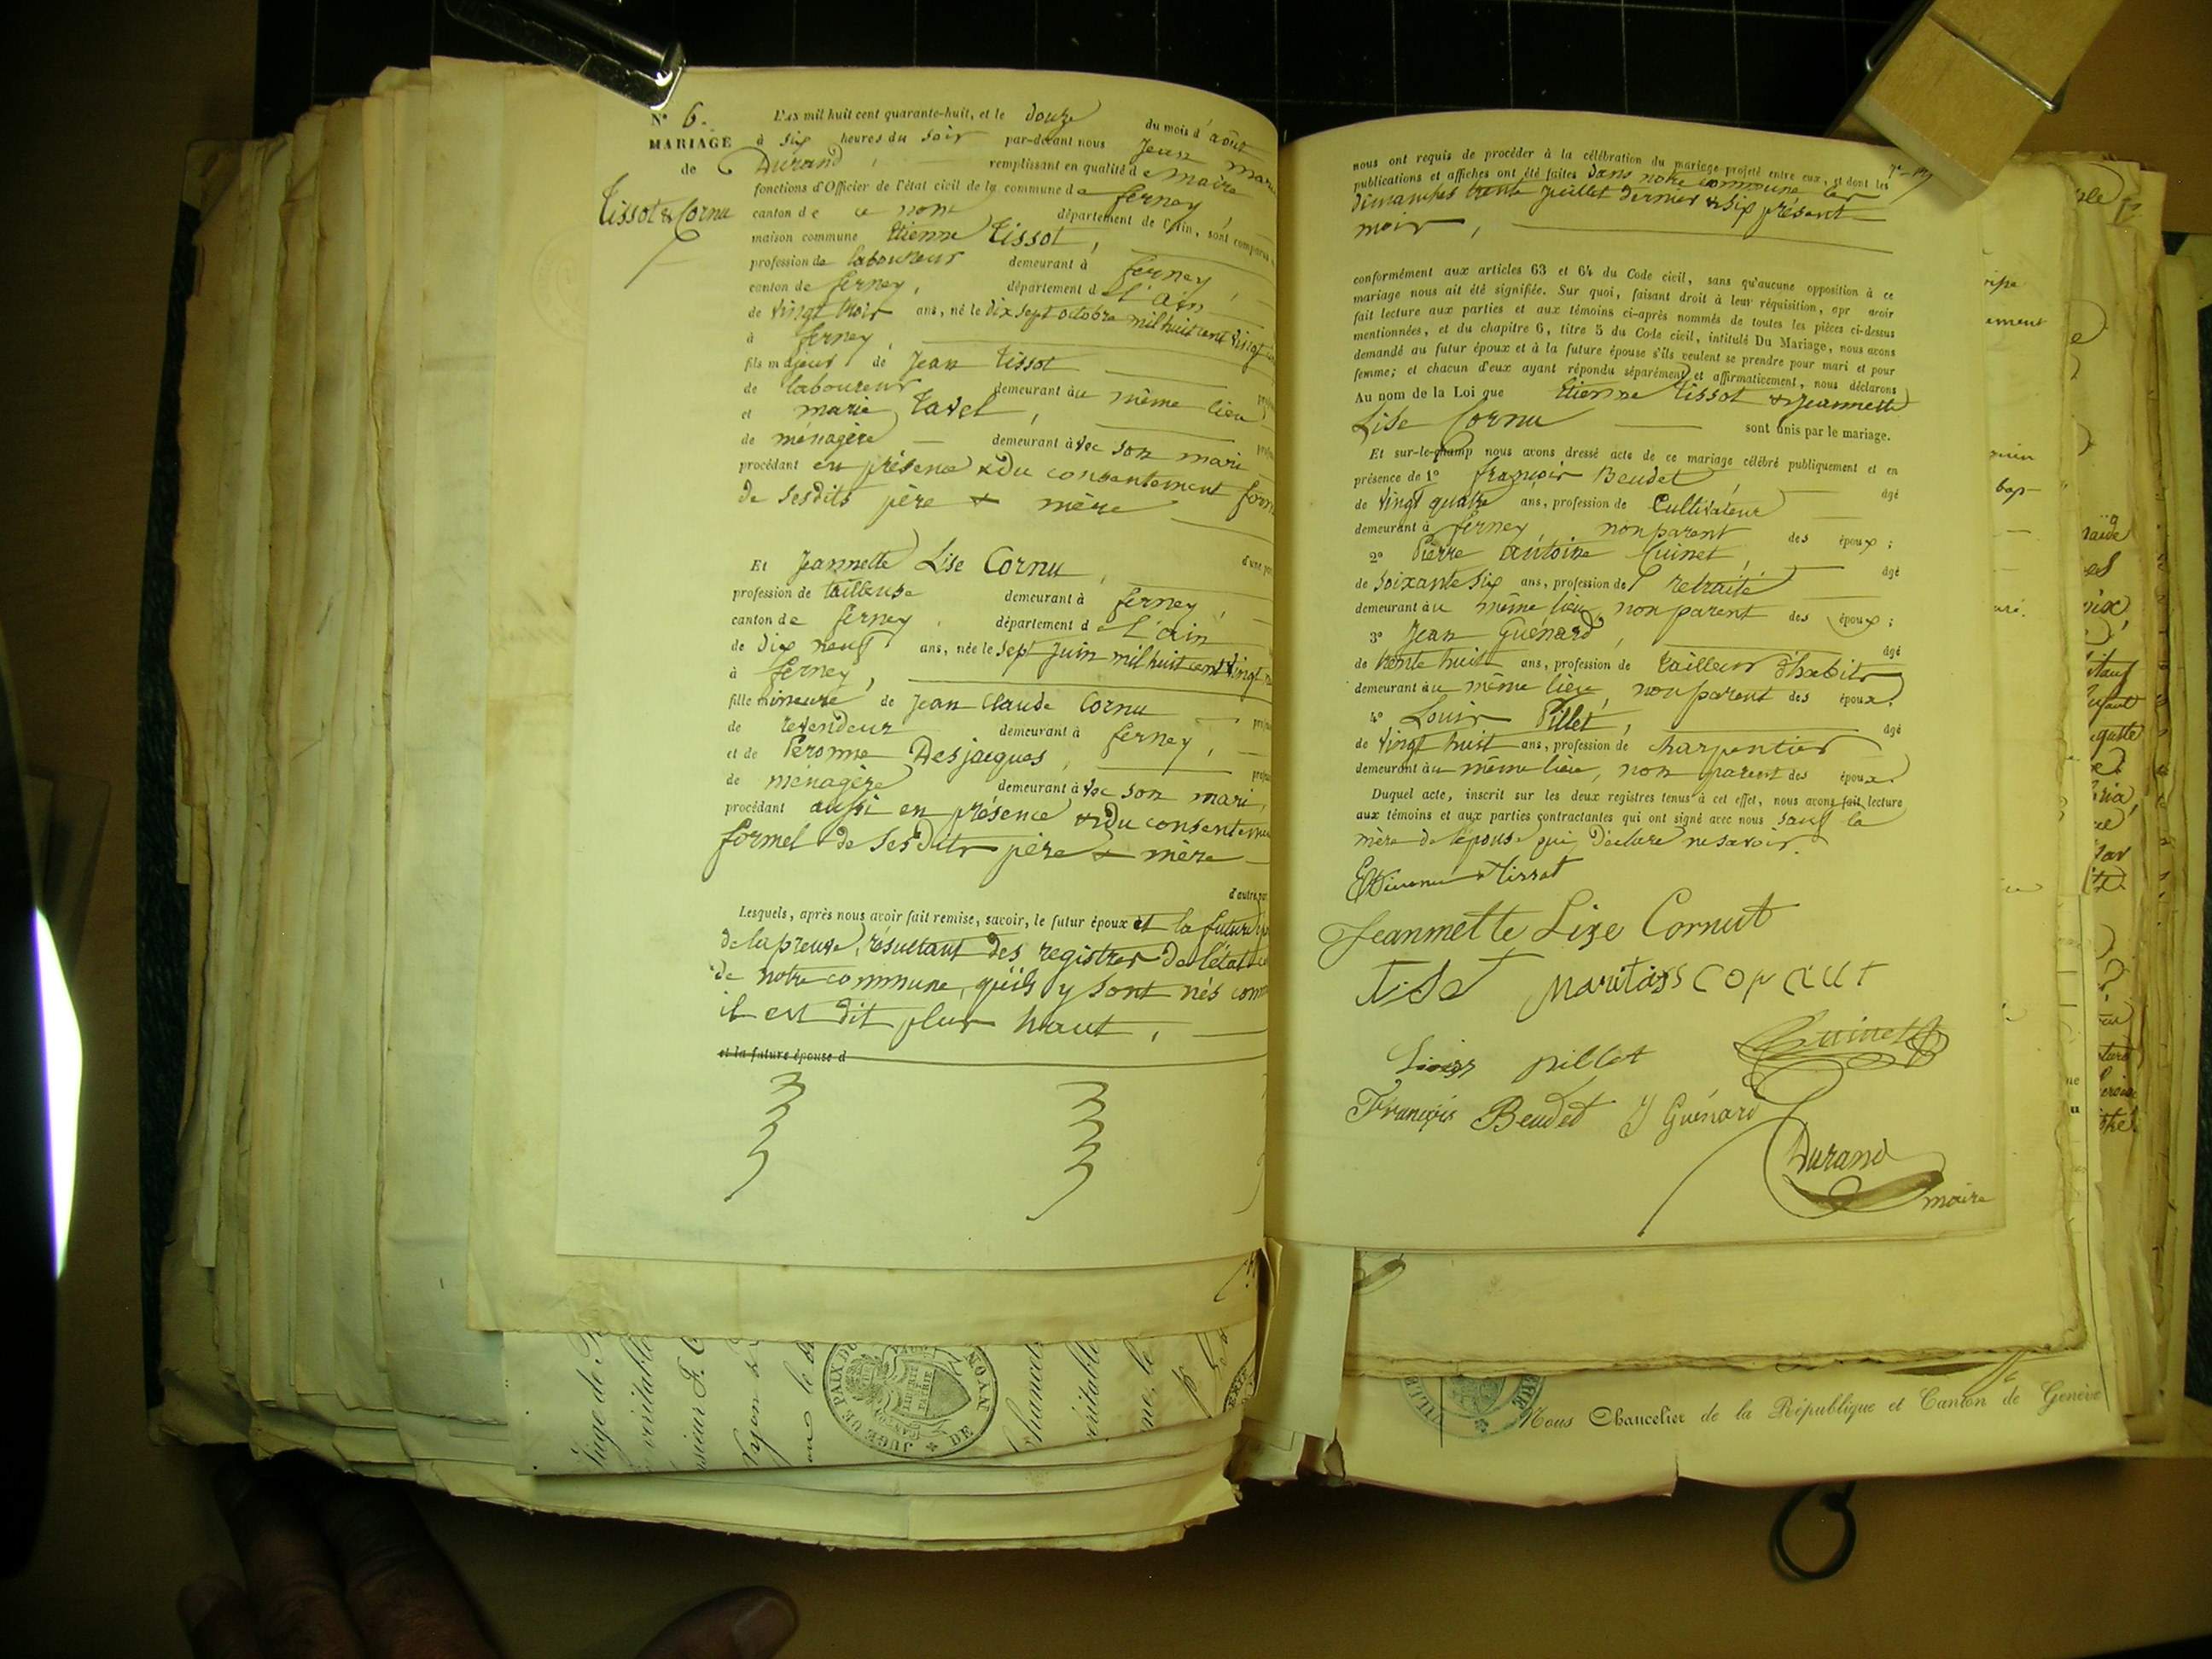 N° 6.
MARIAGE
de
Tissot & Cornu
L'an mil huit cent quarante-huit, et le douze du mois d'août
à six heures du soir par-devant nous Jean marie
Durand, remplissant en qualité de maire
fonctions d'Officier de l'état civil de la commune de ferney,
canton de ce nom département de l'Ain, sont comparus
maison commune Etienne Tissot,
profession de laboureur demeurant à ferney,
canton de ferney, département de L'ain
de vingt trois ans, né le dix sept octobre mil huit cent vingt
à ferney,
fils majeur de Jean Tissot
de laboureur demeurant au même lieu,
et marie Tavel,
de ménagère demeurant avec son mari
procédant en présence & du consentement form
de sesdits père & mère
d'une par
Et Jeannette Lise Cornu,
profession de tailleuse demeurant à ferney,
canton de ferney, département de L'ain
de dix neuf ans, née le sept juin mil huit cent vingt n
à ferney,
fille mineure de Jean Claude Cornu
de revendeur demeurant à ferney,
et de Peronne Desjacques,
de ménagère demeurant avec son mari,
procédant aussi en présence & du consenteme
formel de sesdits père & mère
d'autre par
Lesquels, après nous avoir fait remise, savoir, le futur époux et la future
de la preuve, résultant des registres de l'état
de notre commune, qu'ils y sont nés com
il est dit plus haut,
et la future épouse d
nous ont requis de procéder à la célébration du mariage projeté entre eux, et dont les
publications et affiches ont été faites dans notre commune les
dimanches trente juillet dernier & six présent
mois,
conformément aux articles 63 et 64 du Code civil, sans qu'aucune opposition à ce
mariage nous ait été signifiée. Sur quoi, faisant droit à leur réquisition, apr avoir
fait lecture aux parties et aux témoins ci-après nommés de toutes les pièces ci-dessus
mentionnées, et du chapitre 6, titre 5 du Code civil, intitulé Du Mariage, nous avons
demandé au futur époux et à la future épouse s'ils veulent se prendre pour mari et pour
femme; et chacun d'eux ayant répondu séparément et affirmativement, nous déclarons
Au nom de la Loi que Etienne Tissot & Jeannette
Lise Cornu sont unis par le mariage.
Et sur-le-champ nous avons dressé acte de ce mariage célébré publiquement et en
présence de 1° françois Beudet, âgé
de vingt quatre ans, profession de Cultivateur
demeurant à ferney, non parent des époux;
2° Pierre antoine Cuinet, âgé
de soixante six ans, profession de retraité
demeurant au même lieu, non parent des époux;
3° Jean Guénard, âgé
de trente huit ans, profession de tailleur d'habits
demeurant au même lieu, non parent des époux.
4° Louis Pillet, âgé
de vingt huit ans, profession de charpentier
demeurant au même lieu, non parent des époux.
Duquel acte, inscrit sur les deux registres tenus à cet effet, nous avons fait lecture
aux témoins et aux parties contractantes qui ont signé avec nous sauf la
mère de l'épouse qui déclare ne savoir.
Etienne Tissot
Jeannette Lise Cornut
Cuinet
Louis pillet
François Beudet J Guénard
Durand
maire
JUGE DE PAIX DU
DE
NOYAN
LIBERTÉ
PATRIE
Nous Chancelier de la République et Canton de Genève